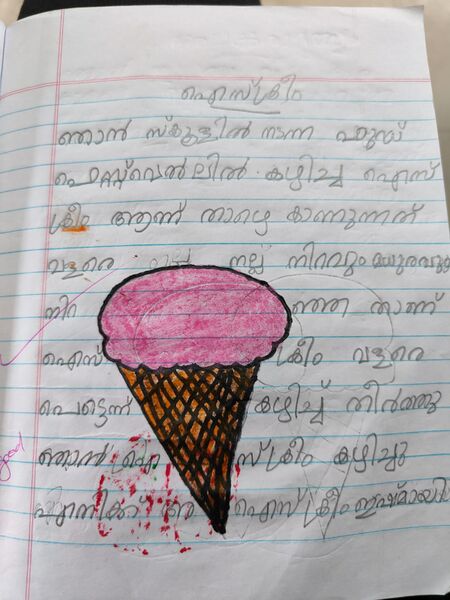 ഐസ്ക്രീം
ഞാൻ സ്കൂളിൽ നടന്ന
കഴിച്ച ഐസ്
ക്രീം ആണ് താഴെ കാണുന്നത്
വളരെ നല്ല നിറവും മധുരവും
നിറ ഞ്ഞ താണ്
ഐസ് ക്രീം വളരെ
പെട്ടെന്ന് കഴിച്ച് തീർത്തു
ഞാൻ ഐ സ്ക്രീം കഴിച്ചു
എനിക്ക് ഐസ് ക്രീം ഇഷ്ടമായി
good